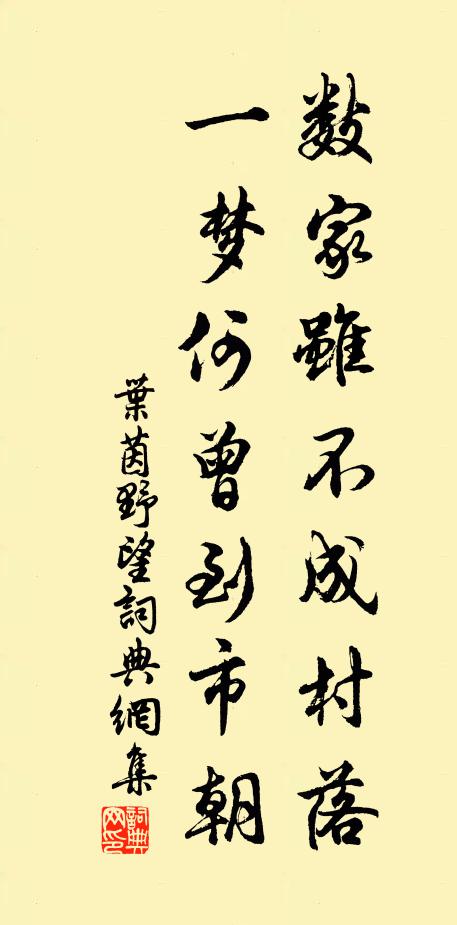 数家雖不成村落
一梦何曾到市朝
葉茵野望詞典網集
詞典
网印